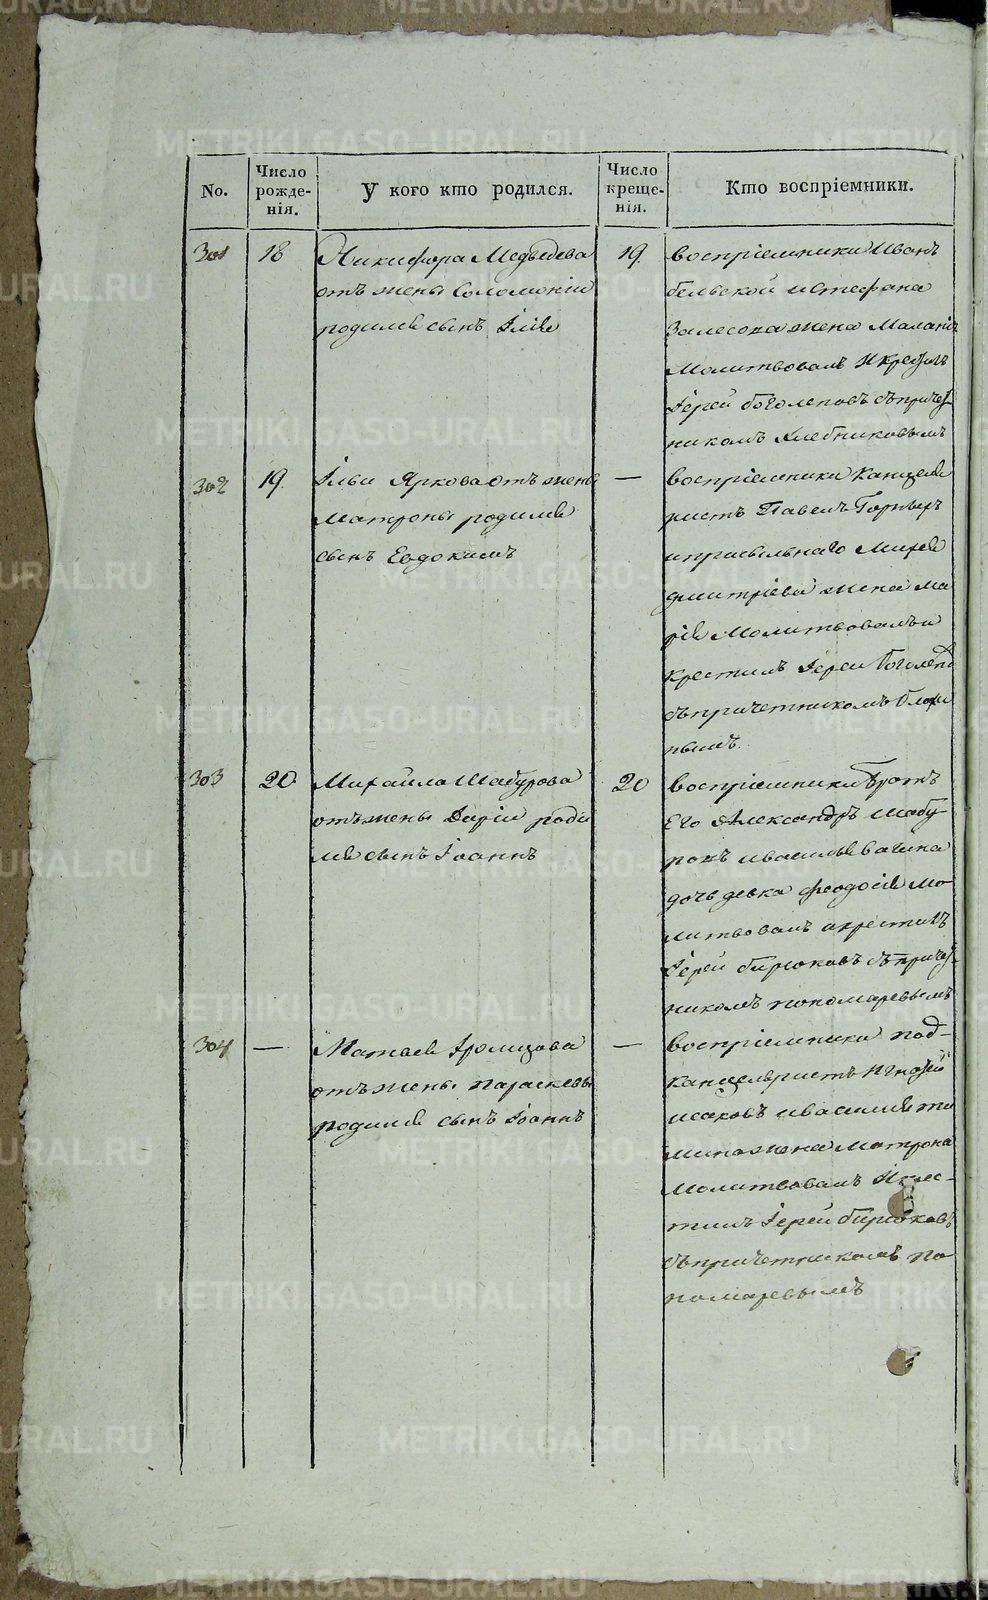 No.
Число рожде-нія.
У кого кто родился.
Число креще-нія.
Кто воспріемники.
301
18
Никифора Медведева
отъ жены Соломоніи
родился сынъ Илія
19
воспріемники Иванъ
бельской и Стефана
жена Маланія
Молитвовалъ и крестилъ
Іерей боголеповъ съ причет
никомъ Хлебниковымъ
302
19.
Ильи Яркова отъ жены
Матроны родился
сынъ Евдокимъ
—
воспріемники Канцеля
ристъ Павелъ
Михея
дмитріева жена Ма
рія Молитвовалъ и
крестилъ Іерей Боголепо
съ причетникомъ
нымъ.
303
20
Михайла Шабурова
отъ жены Даріи роди
лся сынъ Іоаннъ
20
воспріемники Братъ
Его Александръ Шабу-
ровъ и василья вагина
дочь девка феодосія мо-
литвовалъ и крестилъ
Іерей бирюковъ съ причет-
никомъ пономаревымъ
304
—
Матвея
отъ жены параскевы
родился сынъ Іоаннъ
—
воспріемники под-
канцеляристъ Игнатей
исаковъ и василія ти
мина жена Матрона
Молитвовалъ и крес-
тилъ Іерей бирюковъ
съ причетникомъ по
номаревымъ
METRIKI.GASO-URAL.RU